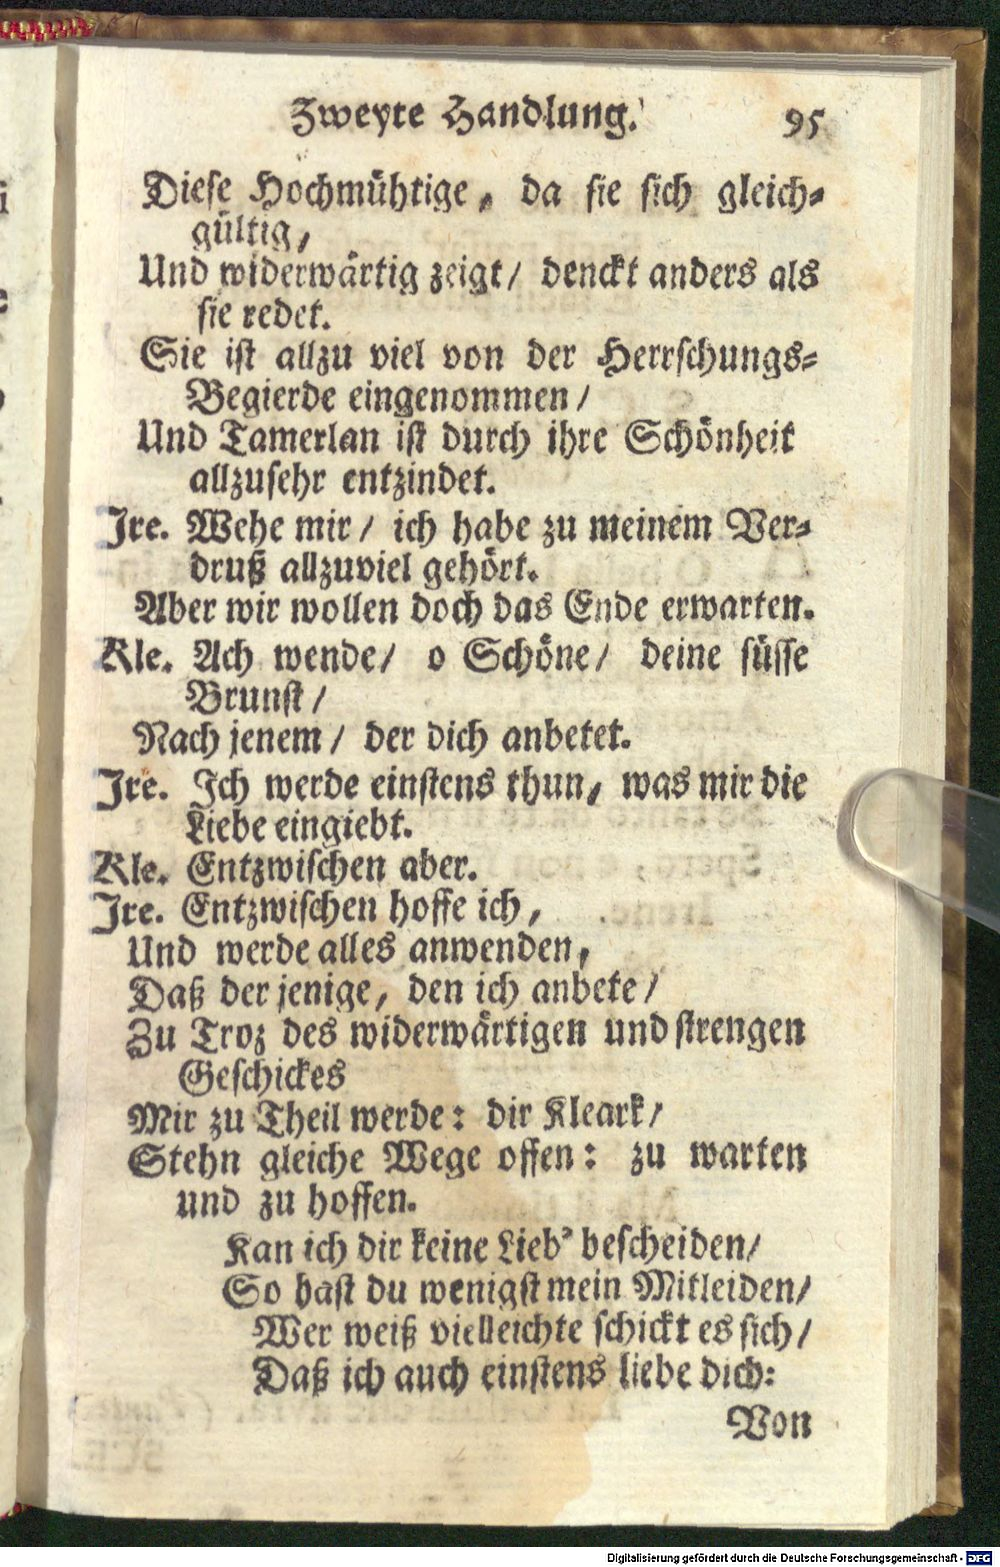 Zweyte Handlung. 95
Diese Hochmühtige, da sie sich gleich-
gültig,
Und widerwärtig zeigt/ denckt anders als
sie redet.
Sie ist allzu viel von der Herrschungs-
Begierde eingenommen/
Und Tamerlan ist durch ihre Schönheit
allzusehr entzindet.
Ire. Wehe mir/ ich habe zu meinem Ver-
druß allzuviel gehört.
Aber wir wollen doch das Ende erwarten.
Kle. Ach wende/ o Schöne/ deine süsse
Brunst/
Nach jenem/ der dich anbetet.
Ire. Ich werde einstens thun, was mir die
Liebe eingiebt.
Kle. Entzwischen aber.
Ire. Entzwischen hoffe ich,
Und werde alles anwenden,
Daß der jenige, den ich anbete/
Zu Troz des widerwärtigen und strengen
Geschickes
Mir zu Theil werde: dir Kleark/
Stehn gleiche Wege offen: zu warten
und zu hoffen.
Kan ich dir keine Lieb' bescheiden/
So hast du wenigst mein Mitleiden/
Wer weiß vielleichte schickt es sich/
Daß ich auch einstens liebe dich:
Von
Digitalisierung gefördert durch die Deutsche Forschungsgemeinschaft - DFG